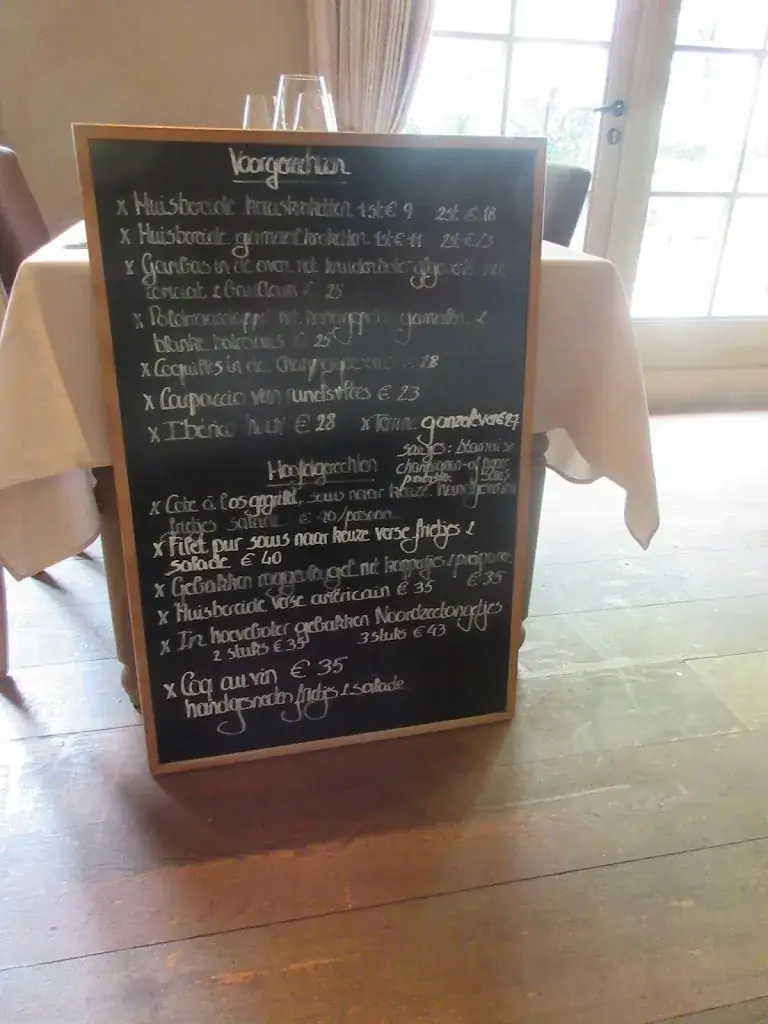 Voorgerechten
x Huisbereide kaaskroketten 1st € 9 2st € 18
x Huisbereide garnaalkroketten 1st € 11 2st € 23
x Gambas in de oven met kruidenboter
tomaat & € 25
x met handgepelde garnalen &
blanke botersaus € 25
x Coquilles in de champagnesaus € 28
x Carpaccio van rundsvlees € 23
x Ibérico ham € 28 x Terrine ganzelever € 27
sausjes: béarnaise
champignon- of peper
saus
Hoofdgerechten
x Côte à l'os gegrild, saus naar keuze, handgesneden
frietjes salade € 40/persoon
x Filet pur saus naar keuze verse frietjes &
salade € 40
x Gebakken roggevleugel met kappertjes &
€ 35
x Huisbereide verse américain € 35
x In hoeveboter gebakken Noordzeetongetjes
2 stuks € 35 3 stuks € 43
x Coq au vin € 35
handgesneden frietjes & salade